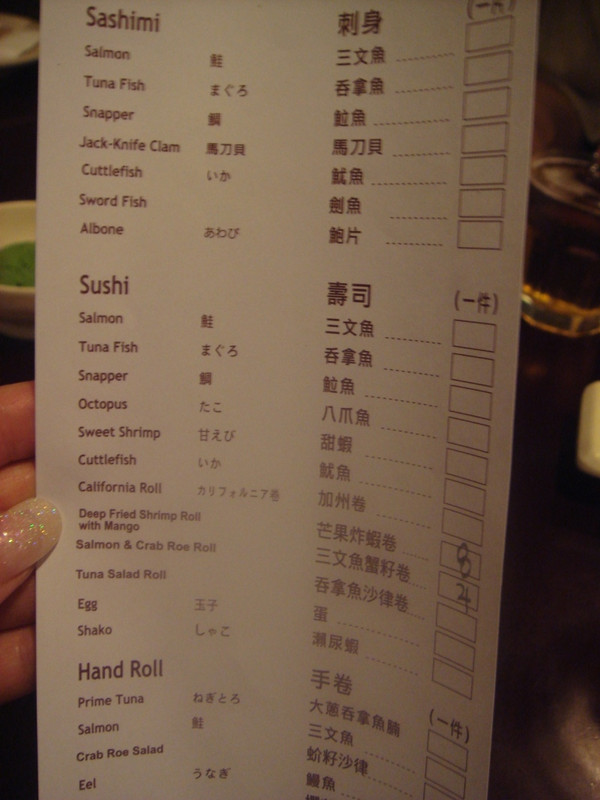 Sashimi 刺身 (一片)
Salmon 鮭 三文魚
Tuna Fish まぐろ 吞拿魚
Snapper 鯛 魚立魚
Jack-Knife Clam 馬刀貝 馬刀貝
Cuttlefish いか 魷魚
Sword Fish 劍魚
Albone あわび 鮑片
Sushi 壽司 (一件)
Salmon 鮭 三文魚
Tuna Fish まぐろ 吞拿魚
Snapper 鯛 魚立魚
Octopus たこ 八爪魚
Sweet Shrimp 甘えび 甜蝦
Cuttlefish いか 魷魚
California Roll カリフォルニア巻 加州卷
Deep Fried Shrimp Roll
with Mango 芒果炸蝦卷 8
Salmon & Crab Roe Roll 三文魚蟹籽卷 4
Tuna Salad Roll 吞拿魚沙律卷
Egg 玉子 蛋
Shako しゃこ 瀨尿蝦
Hand Roll 手卷 (一件)
Prime Tuna ねぎとろ 大蔥吞拿魚腩
Salmon 鮭 三文魚
Crab Roe Salad 蚧籽沙律
Eel うなぎ 鰻魚